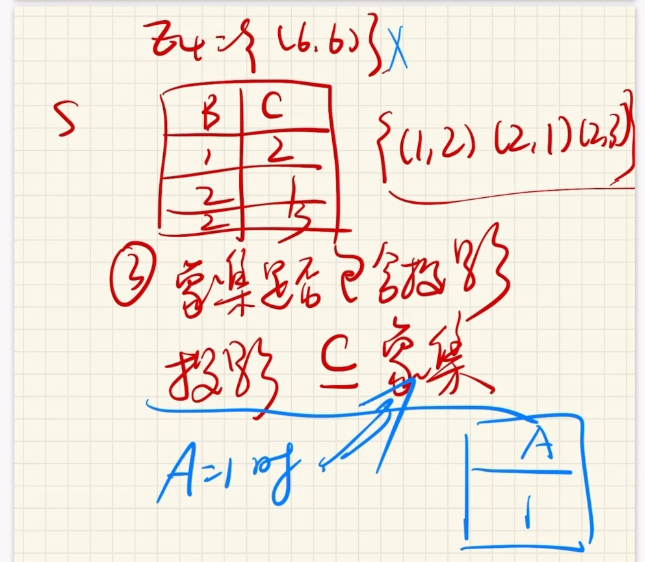 Z₄={(6,6)} X
S
B C
1 2
2 1
2 3
{(1,2)(2,1)(2,3)}
③ 象集是否包含投影
投影 ⊆ 象集
A=1时
A
1